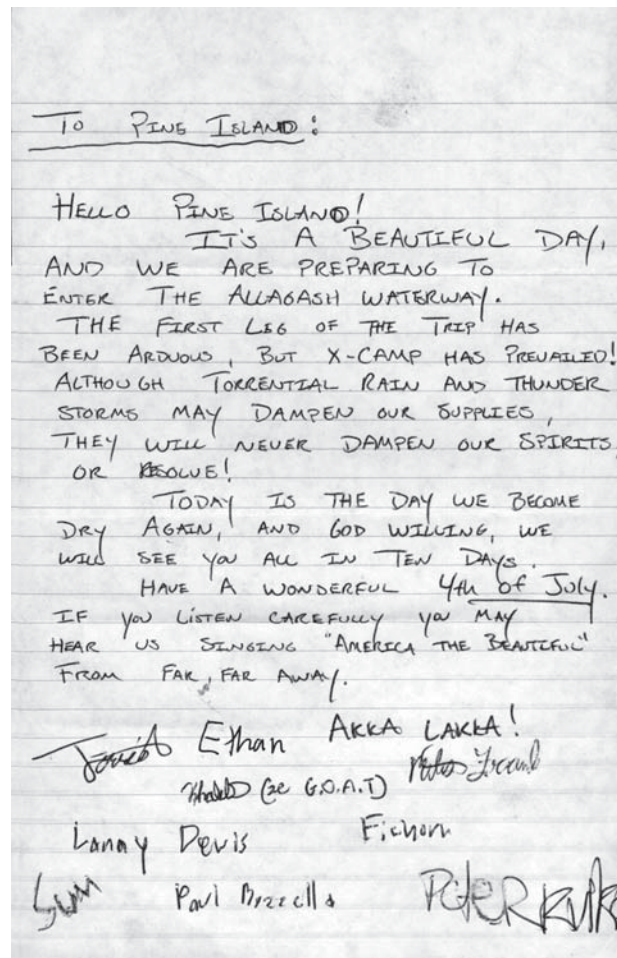 TO PINE ISLAND:
HELLO PINE ISLAND!
IT'S A BEAUTIFUL DAY,
AND WE ARE PREPARING TO
ENTER THE ALLAGASH WATERWAY.
THE FIRST LEG OF THE TRIP HAS
BEEN ARDUOUS, BUT X-CAMP HAS PREVAILED!
ALTHOUGH TORRENTIAL RAIN AND THUNDER
STORMS MAY DAMPEN OUR SUPPLIES,
THEY WILL NEVER DAMPEN OUR SPIRITS
OR RESOLVE!
TODAY IS THE DAY WE BECOME
DRY AGAIN, AND GOD WILLING, WE
WILL SEE YOU ALL IN TEN DAYS.
HAVE A WONDERFUL 4th of July.
IF YOU LISTEN CAREFULLY YOU MAY
HEAR US SINGING "AMERICA THE BEAUTIFUL"
FROM FAR, FAR AWAY.
AKKA LAKKA!
Ethan
(ze G.O.A.T)
Lanny Devis
Paul
Peter